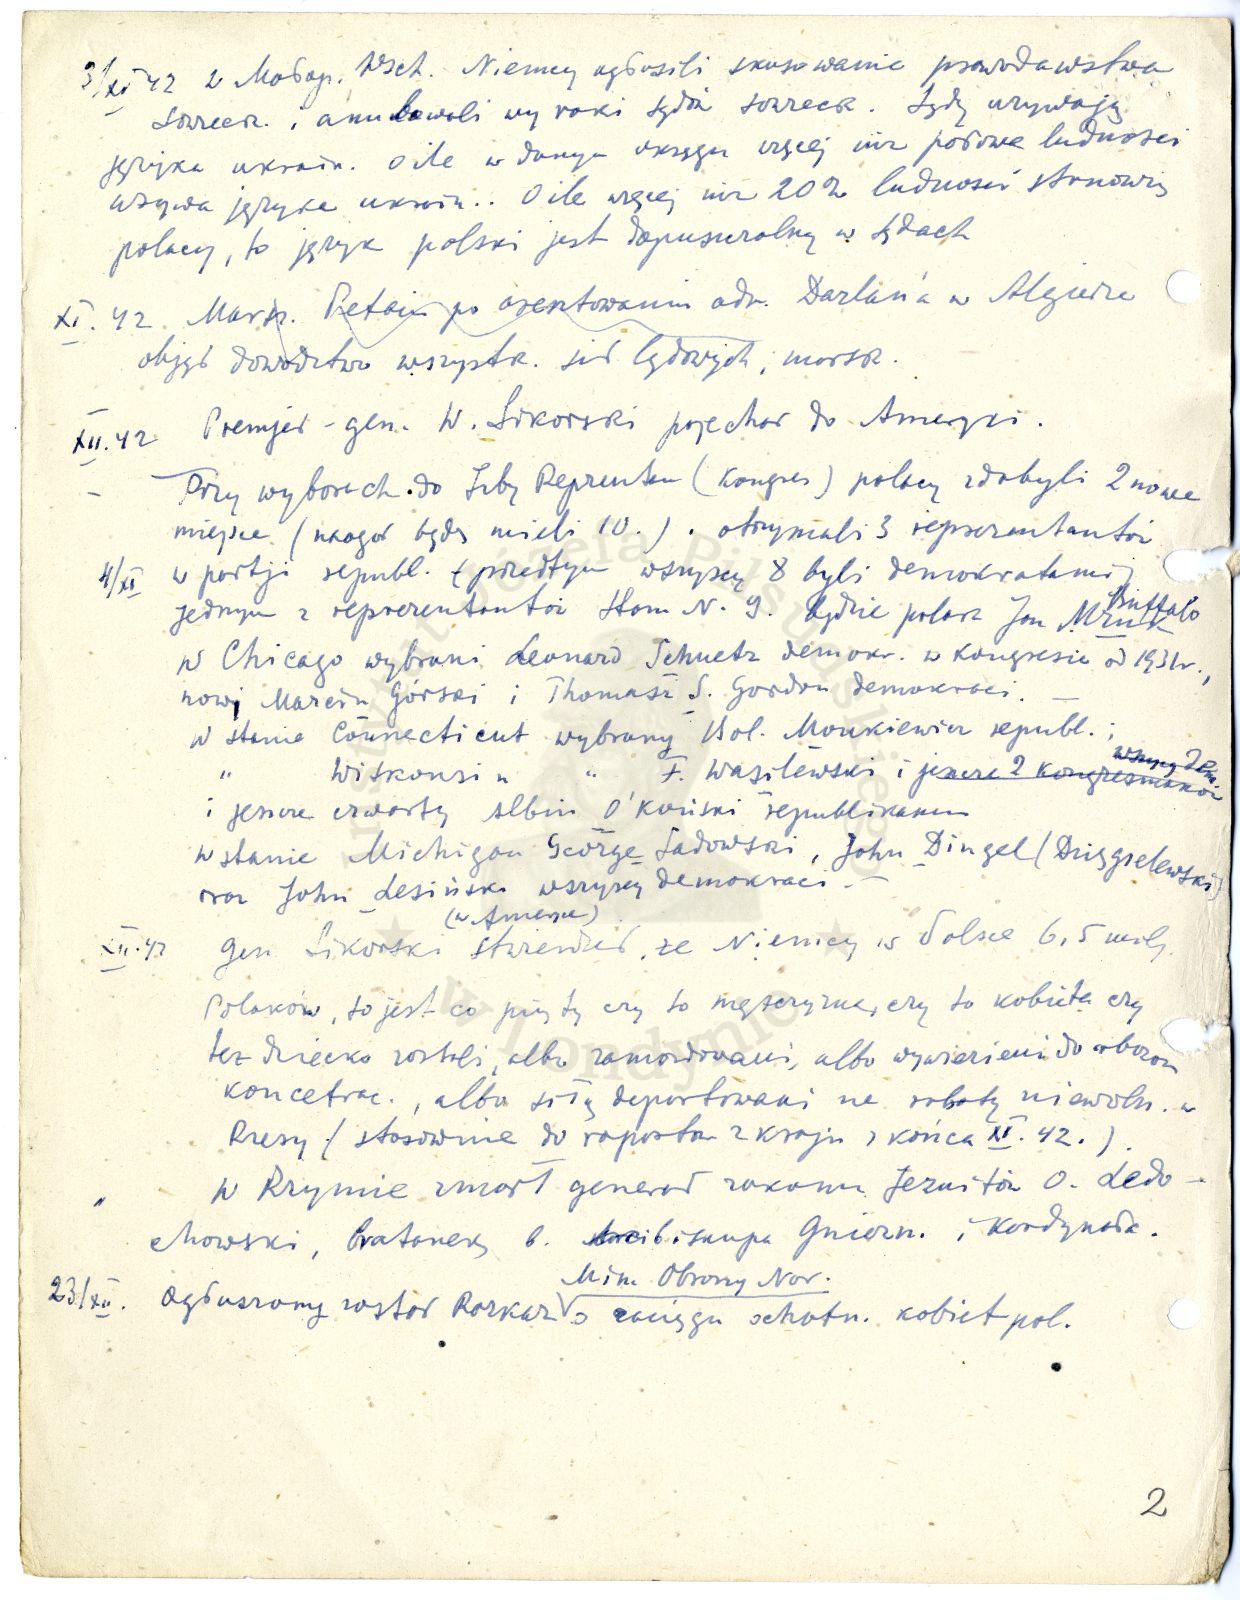 3/XI 42 w Małop. Wsch. Niemcy ogłosili skasowanie prawodawstwa
sowieck. i anulowali wyroki sądów sowieck. Sądy używają
języka ukraiń. o ile w danym okręgu więcej niż połowa ludności
używa języka ukraiń.. O ile więcej niż 20% ludności stanowią
polacy, to język polski jest dopuszczalny w sądach
XI. 42 Marsz. Petain po aresztowaniu adm. Darlan'a w Algierze
objął dowództwo wszystk. sił lądowych i morsk.
XII. 42 Premjer - gen. W. Sikorski pojechał do Ameryki.
- Przy wyborach do Izby Reprezentan (Kongres) polacy zdobyli 2 nowe
miejsca (naogół będą mieli 10.). otrzymali 3 reprezentantów
4/XI w partji republ. (przedtym wszyscy 8 byli demokratami)
jednym z reprezentantów Stanu N. Y. będzie polak Jan Mruk Buffalo
W Chicago wybrani Leonard Schuetz demokr. w kongresie od 1931r.,
nowi Marcin Górski i Thomasz S. Gordon demokraci. —
W stanie Connecticut wybrany Bol. Monkiewicz republ.;
" Wiskonsin " F. Wasilewski i jeszcze 2 kongresmanów wszyscy dem.
i jeszcze czwarty Albin O'Koński republikanin
W stanie Michigan George Sadowski, John Dingel (Dzięgielewski)
oraz John Lesiński wszyscy demokraci. —
(w Ameryce)
XII. 42 gen Sikorski stwierdził, że Niemcy w Polsce 6,5 milj.
Polaków, to jest co piąty czy to mężczyzna, czy to kobieta czy
też dziecko zostali, albo zamordowani, albo wywiezieni do obozów
koncetrac., albo siłą deportowani na roboty niewoln. w
Rzeszy (stosownie do raportów z kraju z końca XI. 42.).
" W Rzymie zmarł generał zakonu Jezuitów O. Ledo-
chowski, bratanek b. arcibiskupa Gniezn. i Kardynała.
Min. Obrony Nar.
23/XII. Ogłuszony został Rozkaz o zaciągu ochotn. kobiet pol.
2
Instytut Józefa Piłsudskiego
w Londynie